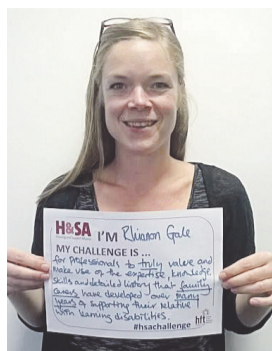 H&SA I'M Rhiannon Gale
MY CHALLENGE IS ...
for professionals to truly value and
make use of the expertise, knowledge,
skills and detailed history that family
carers have developed over many
years of supporting their relative
with learning disabilities.
hft
#hsachallenge